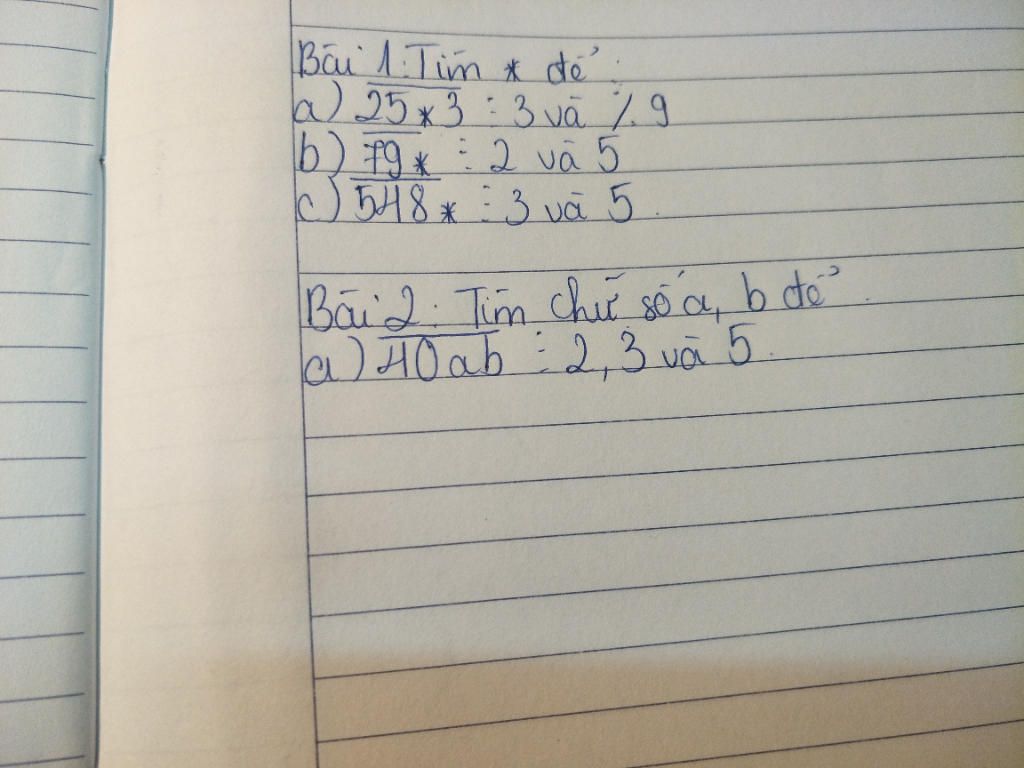 Bài 1: Tìm * để :
a) 25*3 ⋮ 3 và ⋮̸ 9
b) 79* ⋮ 2 và 5
c) 548* ⋮ 3 và 5.
Bài 2: Tìm chữ số a, b để
a) 40ab ⋮ 2, 3 và 5.